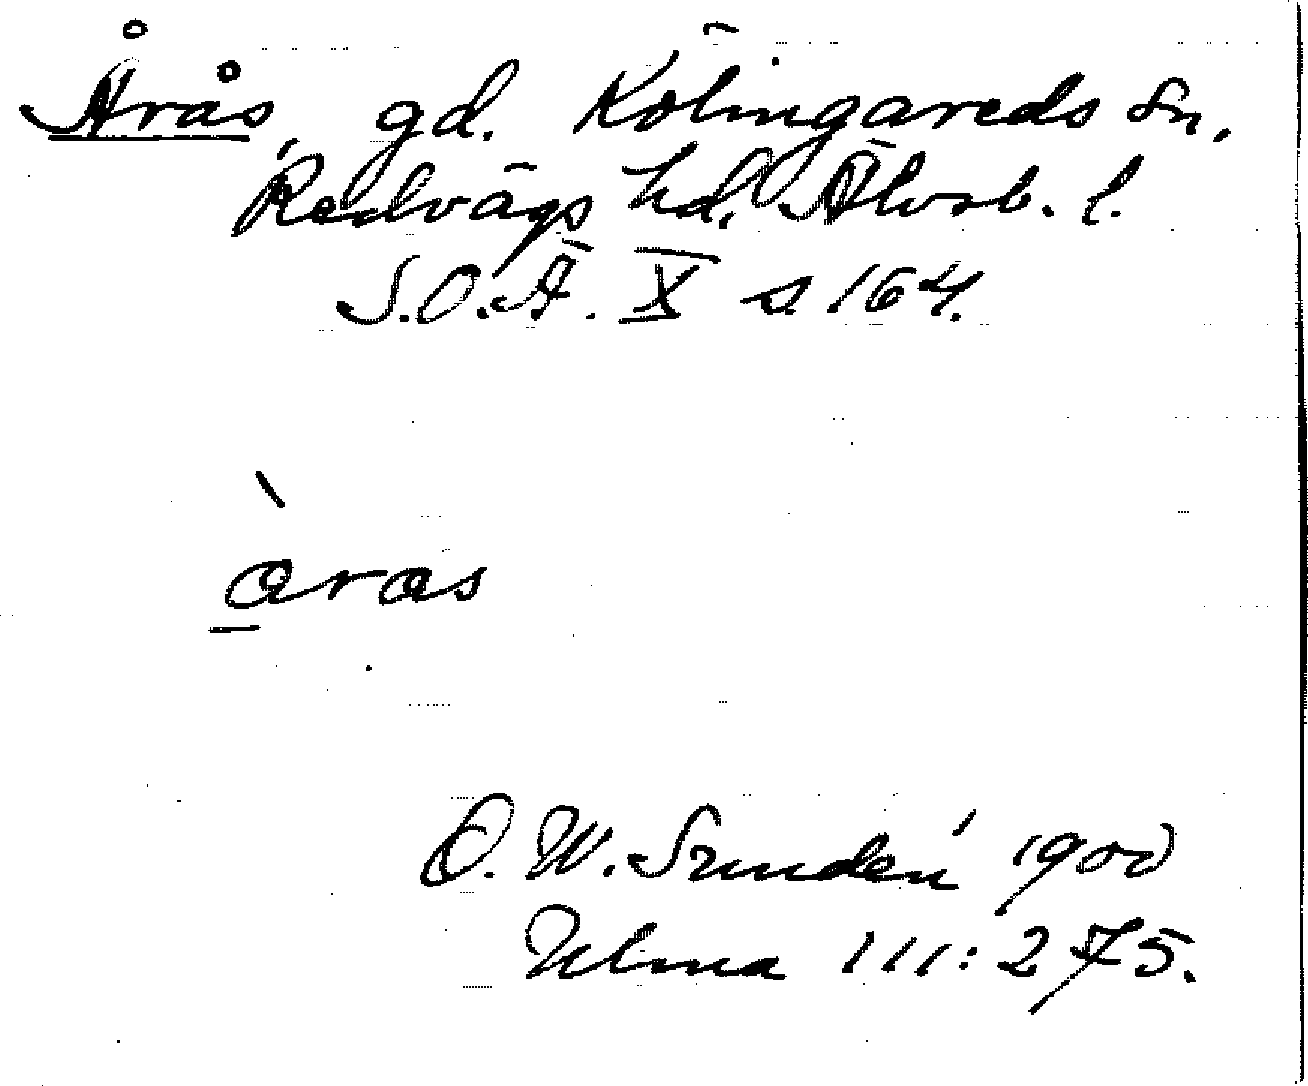 Årås, gd. Kölingareds sn,
Redvägs hd, Älvsb. l.
S.O.Ä. X s 164.
àras
D. W. Sundén 1900
Ulma 111:275.